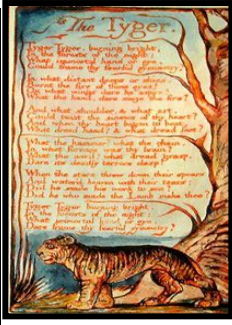 The Tyger.
Tyger Tyger, burning bright,
In the forests of the night;
What immortal hand or eye,
Could frame thy fearful symmetry?
In what distant deeps or skies.
Burnt the fire of thine eyes?
On what wings dare he aspire?
What the hand, dare sieze the fire?
And what shoulder, & what art,
Could twist the sinews of thy heart?
And when thy heart began to beat,
What dread hand? & what dread feet?
What the hammer? what the chain,
In what furnace was thy brain?
What the anvil? what dread grasp,
Dare its deadly terrors clasp?
When the stars threw down their spears
And water'd heaven with their tears:
Did he smile his work to see?
Did he who made the Lamb make thee?
Tyger Tyger burning bright,
In the forests of the night:
What immortal hand or eye,
Dare frame thy fearful symmetry?